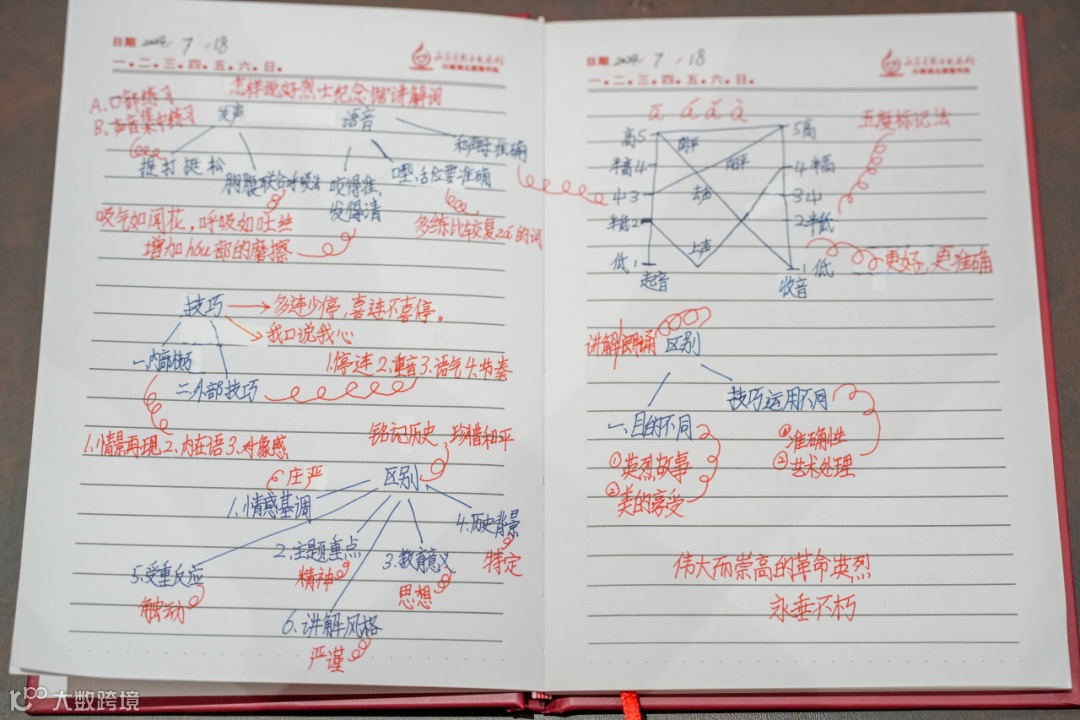 日期 2024.7.18
一.二.三.四.五.六.日.
怎样说好烈士纪念馆讲解词
A.口部练习
B.声音集中练习
发声
语音
提打挺松
胸腹联合呼吸法
咬得准,
发得清
吐活应要准确
和声准确
吸气如闻花,呼吸如吐丝
增加hóu部的磨擦
多练比较复zá的词
技巧
多连少停,喜连不喜停。
我口说我心
一.内部技巧
二.外部技巧
1.停连 2.重音 3.语气 4.节奏
1.情景再现 2.内在语 3.对象感
铭记历史 珍惜和平
庄严
区别
1.情感基调
2.主题重点
精神
3.教育意义
思想
4.历史背景
特定
5.受重反应
触动
6.讲解风格
严谨
日期 2024.7.18
一.二.三.四.五.六.日.
ā á ǎ à
五度标记法
高5
半高4
中3
半低2
低1
起音
阴平
阳平
去声
上声
5高
4半高
3中
2半低
1低
收音
更好,更准确
讲解朗诵 区别
一.目的不同
①英烈故事
②美的享受
技巧运用不同
①准确性
②艺术处理
伟大而崇高的革命英烈
永垂不朽
大数跨境